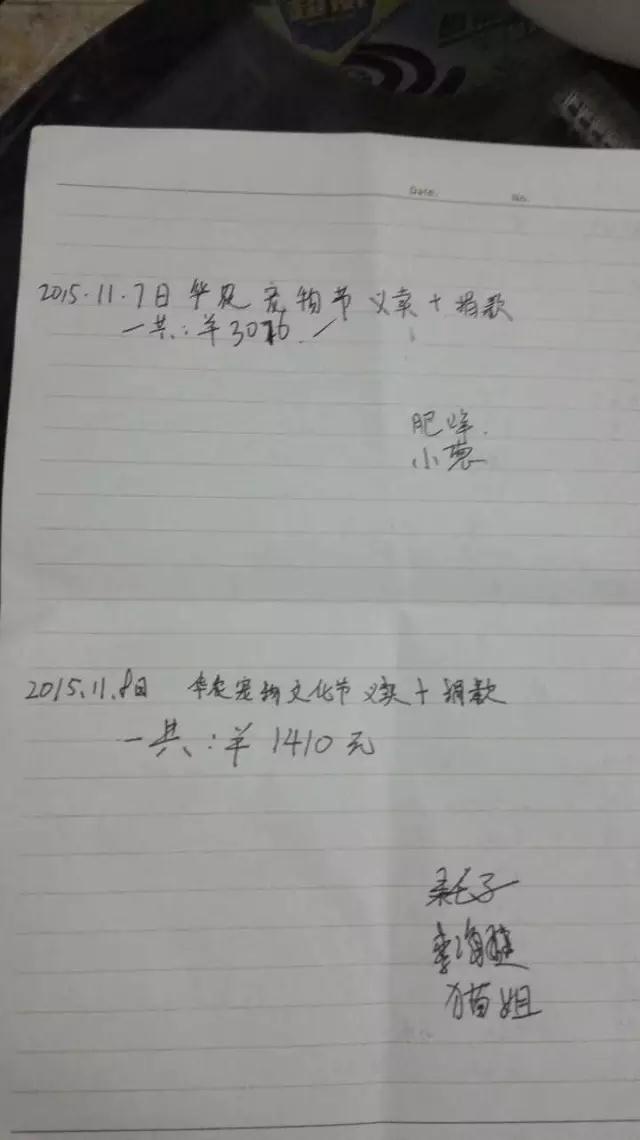 Date.
No.
2015.11.7日 华农宠物节 义卖+捐款
一共:¥3016
肥峰.
小葱
2015.11.8日 华农宠物文化节 义卖+捐款
一共:¥1410元
耗子
猫姐